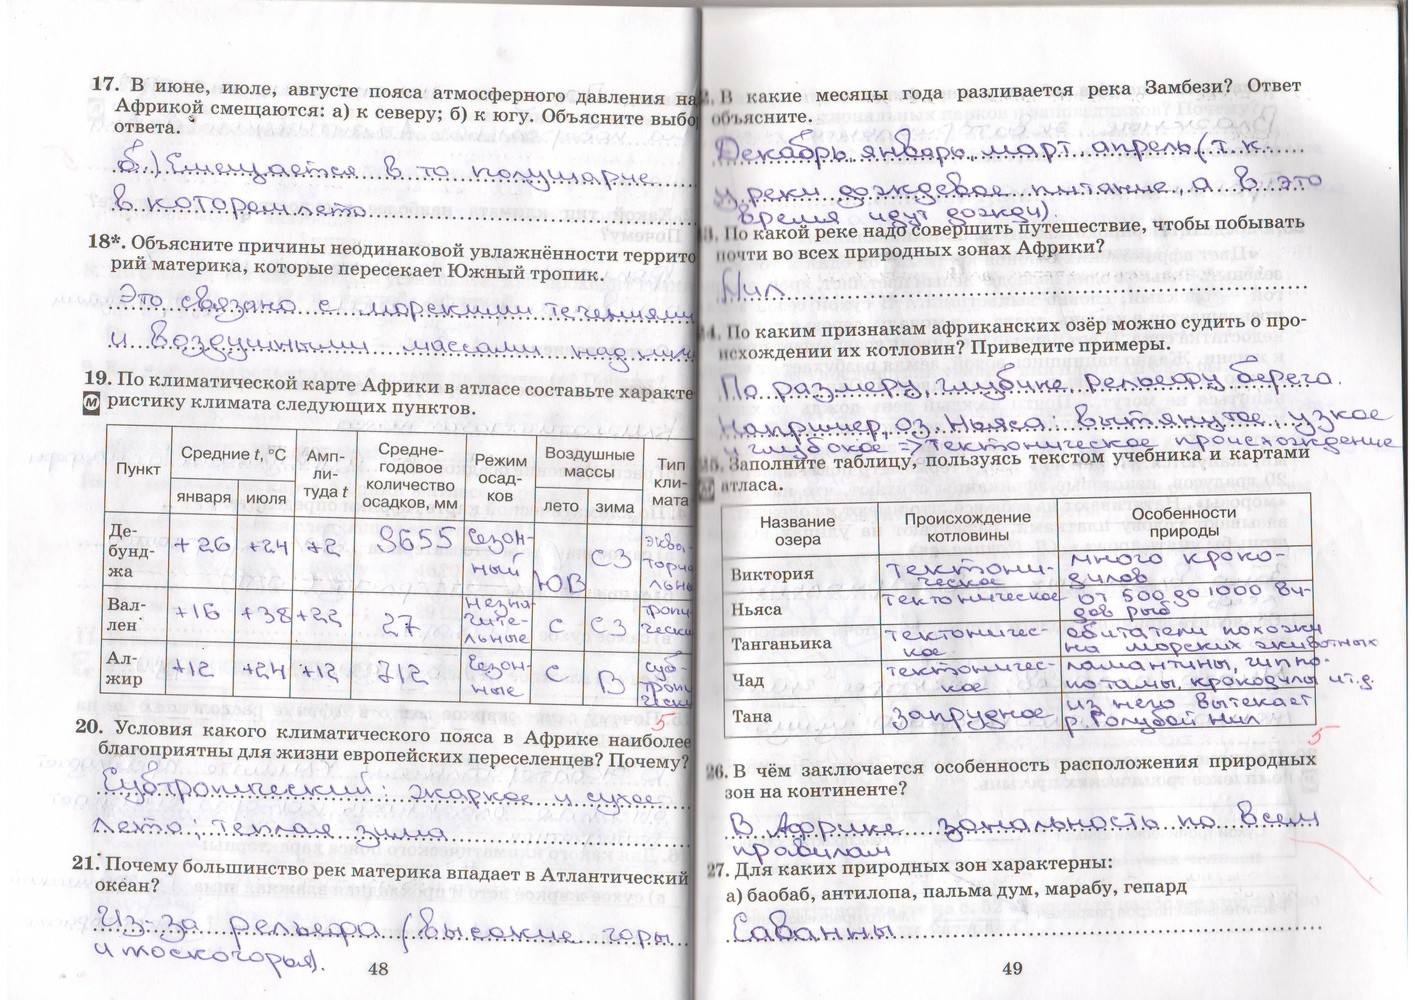 17. В июне, июле, августе пояса атмосферного давления на
Африкой смещаются: а) к северу; б) к югу. Объясните выбо
ответа.
б.) Смещается в то полушарие
в котором лето
18*. Объясните причины неодинаковой увлажнённости террито
рий материка, которые пересекает Южный тропик.
Это связано с морскими течениями
и воздушными массами над ним
19. По климатической карте Африки в атласе составьте характе
М ристику климата следующих пунктов.
Пункт
Средние t, °C
января
июля
Амп-
ли-
туда t
Средне-
годовое
количество
осадков, мм
Режим
осад-
ков
Воздушные
массы
лето
зима
Тип
кли-
мата
Де-
бунд-
жа
+26 +24 +2 9655 сезон-
ный ЮВ СЗ эква-
ториа
льны
Вал-
лен
+16 +38 +22 27 незна-
чите-
льные С СЗ тропи-
чески
Ал-
жир
+12 +24 +12 712 сезон-
ные С В суб-
троп
чески
5
20. Условия какого климатического пояса в Африке наиболее
благоприятны для жизни европейских переселенцев? Почему?
Субтропический: жаркое и сухое
лето, теплая зима
21. Почему большинство рек материка впадает в Атлантический
океан?
Из-за рельефа (высокие горы
и плоскогорья).
48
2. В какие месяцы года разливается река Замбези? Ответ
объясните.
Декабрь, январь, март, апрель (т.к.
у реки дождевое питание, а в это
время идут дожди).
3. По какой реке надо совершить путешествие, чтобы побывать
почти во всех природных зонах Африки?
Нил
4. По каким признакам африканских озёр можно судить о про-
исхождении их котловин? Приведите примеры.
По размеру, глубине, рельефу берега.
Например, оз. Ньяса: вытянутое, узкое
и глубокое => тектоническое происхождение
5. Заполните таблицу, пользуясь текстом учебника и картами
атласа.
Название
озера
Происхождение
котловины
Особенности
природы
Виктория
тектони-
ческое
много кроко-
дилов
Ньяса
тектоническое
от 500 до 1000 ви-
дов рыб
Танганьика
тектоничес-
кое
обитатели похожи
на морских животных
Чад
тектоничес-
кое
ламантины, гиппо-
потамы, крокодилы и т.д.
Тана
запрудное
из него вытекает
р. Голубой Нил
5
26. В чём заключается особенность расположения природных
зон на континенте?
В Африке зональность по всем
правилам
27. Для каких природных зон характерны:
а) баобаб, антилопа, пальма дум, марабу, гепард
Саванны
49